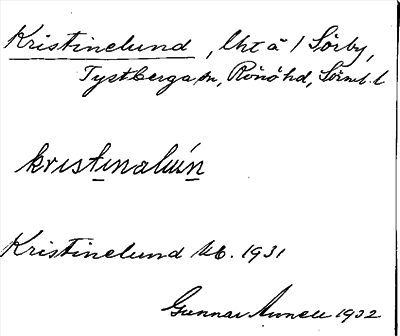 Kristinelund, lht å 1 Sörby,
Tystberga sn, Rönö hd, Sörml. l
kristinalún
Kristinelund Kb. 1931
Gunnar Annell 1932